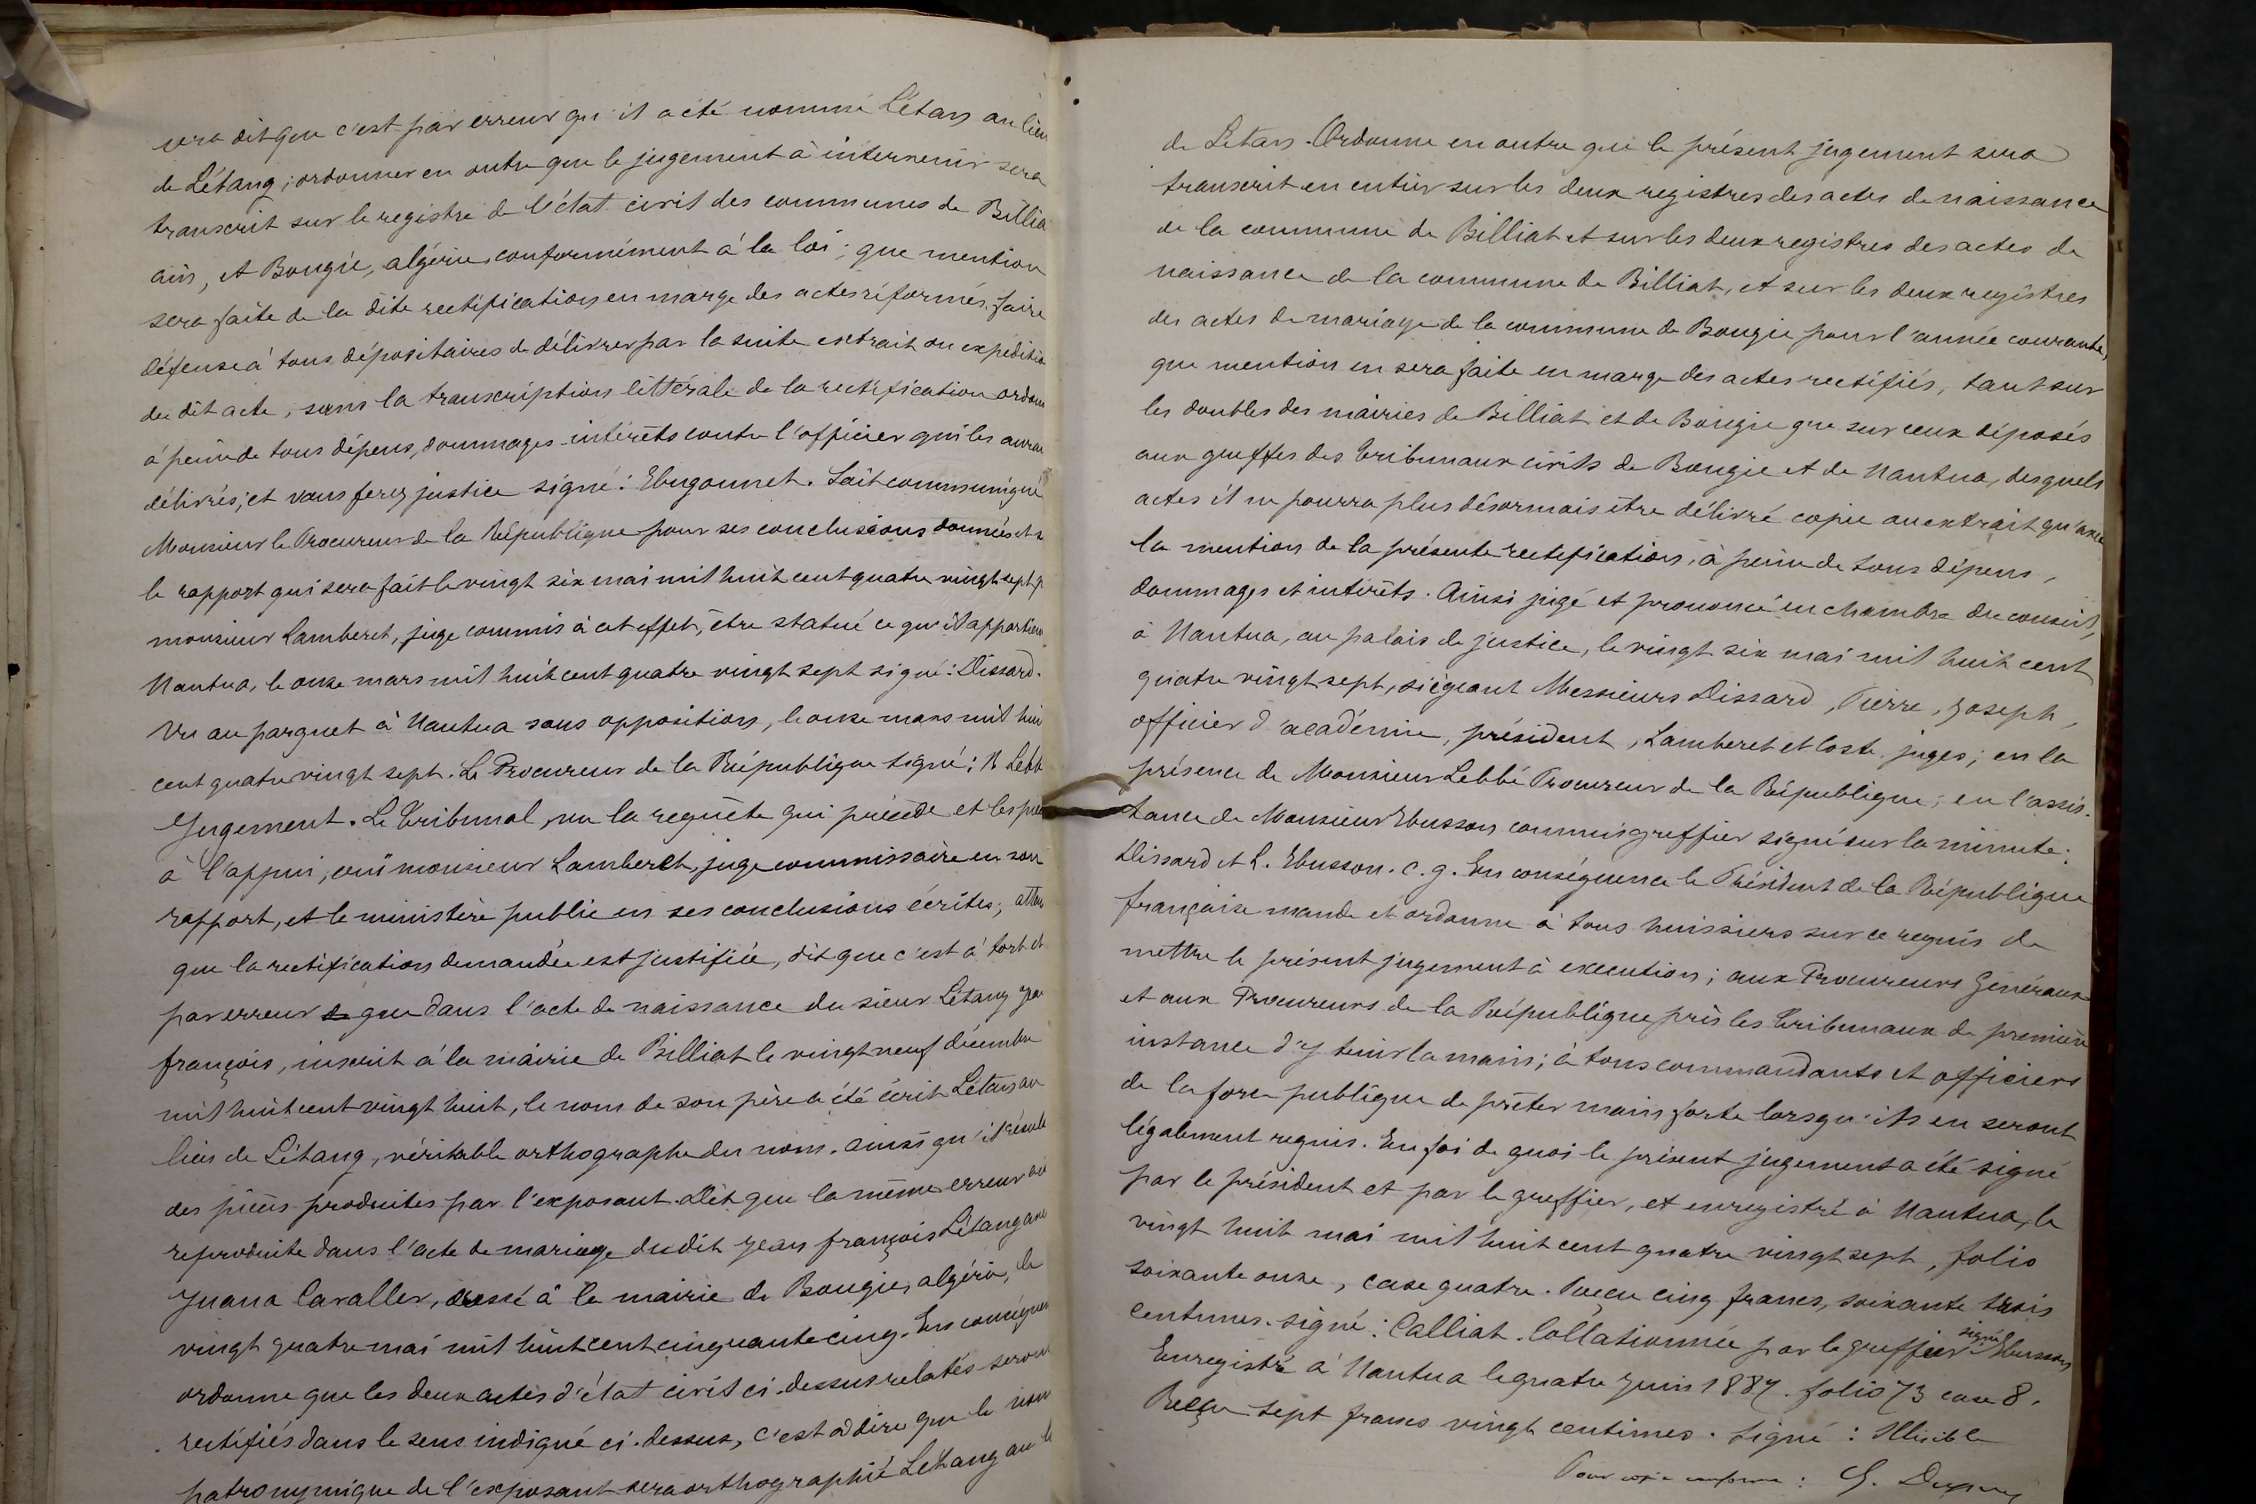 sera dit que c'est par erreur qu'il a été nommé Létan au lieu
de Létang; ordonner en outre que le jugement à intervenir sera
transcrit sur le registre de l'état civil des communes de Billia
ain, et Bougie, algérie, conformément à la loi; que mention
sera faite de la dite rectification en marge des actes réformés. faire
défense à tous dépositaires de délivrer par la suite extrait ou expéditio
du dit acte, sans la transcription littérale de la rectification ordon
à peine de tous dépens, dommages-intérêts contre l'officier qui les aura
délivrés; et vous ferez justice signé: Ebugonnet. Soit communiqué
Monsieur le Procureur de la République pour ses conclusions données et s
le rapport qui sera fait le vingt six mai mil huit cent quatre vingt sept p
monsieur Lamberet, juge commis à cet effet, être statué ce qu'il appartien
Nantua, le onze mars mil huit cent quatre vingt sept signé: Dissard.
Vu au parquet à Nantua sans opposition, le onze mars mil hui
cent quatre vingt sept. Le Procureur de la République signé: N Lebb
Jugement. Le Tribunal, vu la requête qui précède et les piè
à l'appui, ouï monsieur Lamberet, juge commissaire en son
rapport, et le ministère public en ses conclusions écrites; atten
que la rectification demandée est justifiée, dit que c'est à tort et
par erreur que dans l'acte de naissance du sieur Létang Jea
françois, inscrit à la mairie de Billiat le vingt neuf décembre
mil huit cent vingt huit, le nom de son père a été écrit Létan au
lieu de Létang, véritable orthographe du nom. ainsi qu'il résulte
des pièces produites par l'exposant. Dit que la même erreur a é
reproduite dans l'acte de mariage du dit Jean françois Létang avec
Juana Cavaller, dressé à la mairie de Bougie, algérie, le
vingt quatre mai mil huit cent cinquante cinq. En conséquen
ordonne que les deux actes d'état civil ci-dessus relatés seront
rectifiés dans le sens indiqué ci-dessus, c'est à dire que le nom
patronymique de l'exposant sera orthographié Létang au li
de Létan. Ordonne en outre que le présent jugement sera
transcrit en entier sur les deux registres des actes de naissance
de la commune de Billiat et sur les deux registres des actes de
naissance de la commune de Billiat, et sur les deux registres
des actes de mariage de la commune de Bougie pour l'année courante,
que mention en sera faite en marge des actes rectifiés, tant sur
les doubles des mairies de Billiat et de Bougie que sur ceux déposés
aux greffes des tribunaux civils de Bougie et de Nantua, desquels
actes il ne pourra plus désormais être délivré copie ou extrait qu'avec
la mention de la présente rectification, à peine de tous dépens,
dommages et intérêts. Ainsi jugé et prononcé en chambre du conseil,
à Nantua, au palais de justice, le vingt six mai mil huit cent
quatre vingt sept, siégeant Messieurs Dissard, Pierre, Joseph,
officier d'académie, président, Lamberet et Coste juges; en la
présence de Monsieur Lebbé Procureur de la République; en l'assis-
tance de Monsieur Ebusson commis greffier signé sur la minute:
Dissard et L. Ebusson. c. g. En conséquence le Président de la République
française mande et ordonne à tous huissiers sur ce requis de
mettre le présent jugement à execution; aux Procureurs Généraux
et aux Procureurs de la République près les tribunaux de première
instance d'y tenir la main; à tous commandants et officiers
de la force publique de prêter main forte lorsqu'ils en seront
légalement requis. En foi de quoi le présent jugement a été signé
par le président et par le greffier, et enregistré à Nantua, le
vingt huit mai mil huit cent quatre vingt sept, folio
soixante onze, case quatre. Reçu cinq francs, soixante trois
centimes. signé: Calliat. Collationnée par le greffier signé Ebusson
Enregistré à Nantua le quatre Juin 1887. folio 73 case 8.
Reçu sept francs vingt centimes. Signé: Illisible
Pour copie conforme: G. Dupuy